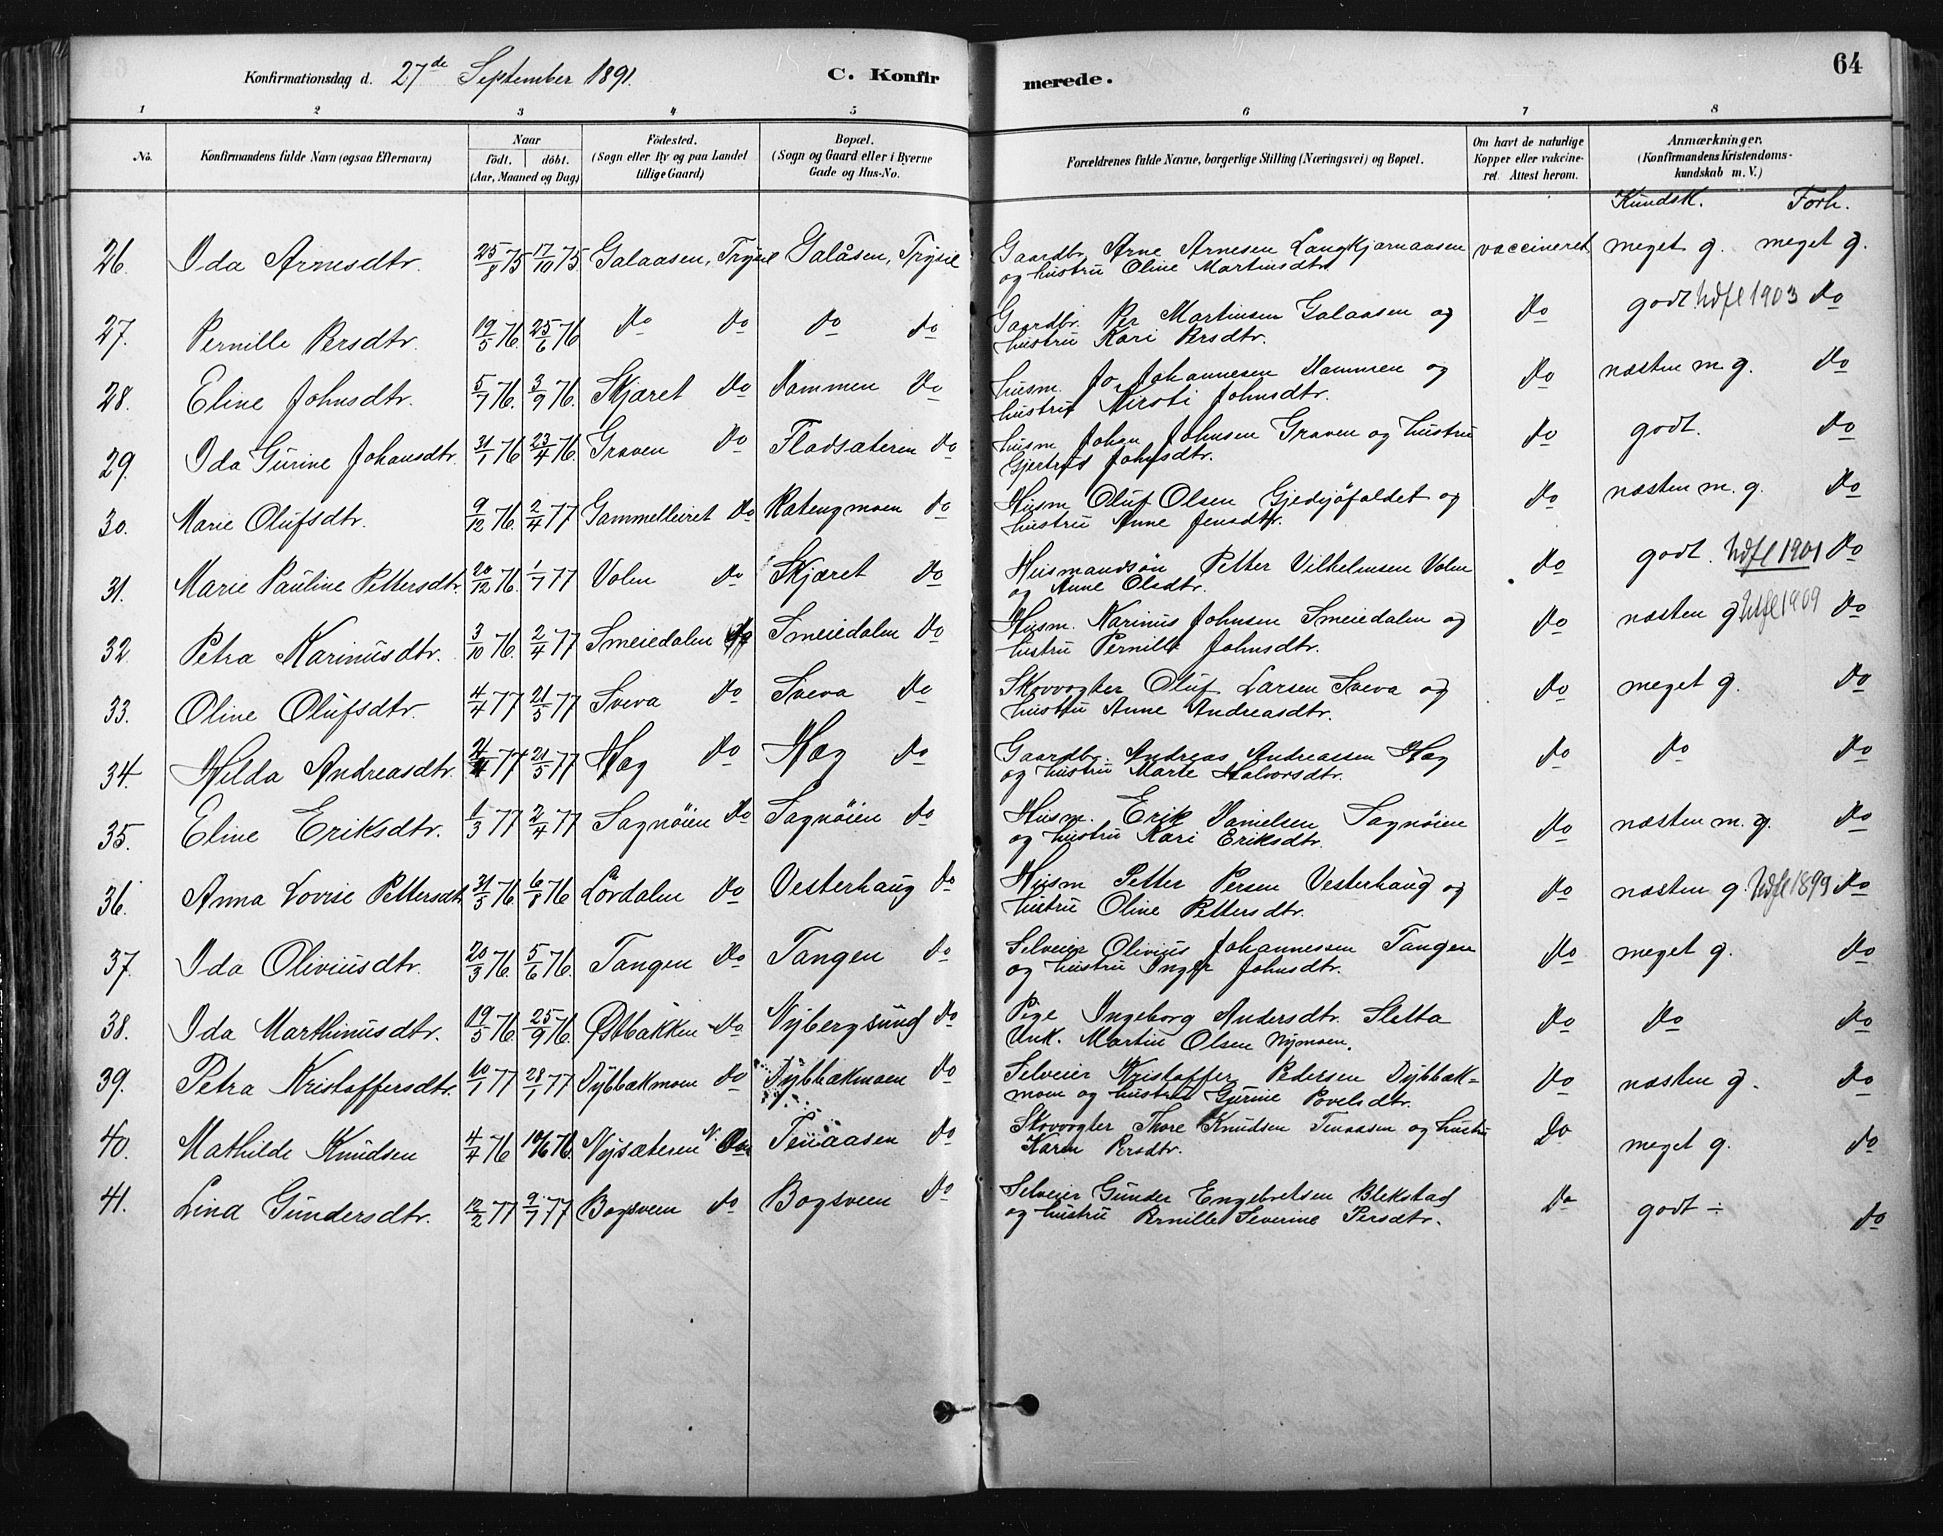 64
Konfirmationsdag d. 27de September 1891. C. Konfir merede.
1 2 3 4 5 6 7 8
No. Konfirmandens fulde Navn (ogsaa Efternavn) Naar födt. döbt. (Aar, Maaned og Dag) Födested. (Sogn eller By og paa Landet tillige Gaard) Bopæl. (Sogn og Gaard eller i Byerne Gade og Hus-No. Forældrenes fulde Navne, borgerlige Stilling (Næringsvei) og Bopæl. Om havt de naturlige Kopper eller vakcineret. Attest herom. Anmærkninger. (Konfirmandens Kristendomskundskab m. V.)
Kundsk. Forh.
26. Ida Arnesdtr. 25/8 75 17/10 75 Galaasen, Trysil Galåsen, Trysil Gaardbr. Arne Arnesen Langkjærnaasen vaccineret meget g. meget g.
og hustru Oline Martinsdtr.
27. Pernille Persdtr. 19/5 76. 25/6 76 do do do do Gaardbr. Per Martinsen Galaasen og do godt Udfl 1903 do
hustru Kari Persdtr.
28. Eline Johnsdtr. 5/7 76. 3/9 76. Skjæret do Dammen do Husm. Jo Johannesen Dammen og do næsten m. g. do
hustru Kirsti Johnsdtr.
29. Ida Gurine Johansdtr. 31/1 76 23/4 76. Graven do Fladsæteren do Husm. Johan Johnsen Graven og hustru do godt. do
Gjertrud Johnsdtr.
30. Marie Olufsdtr. 9/12 76. 2/4 77 Gammelleiret do Ratengmoen do Husm. Oluf Olsen Gjedsjøfaldet og do næsten m. g. do
hustru Anne Jensdtr.
31. Marie Pauline Pettersdtr. 20/12 76. 1/7 77 Volen do Skjæret do Husmandsøn Petter Vilhelmsen Volen do godt. Udfl 1901 do
og Anne Olsdtr.
32. Petra Karinusdtr. 3/10 76. 2/4 77 Smeiedalen do Smeiedalen do Husm. Karinus Johnsen Smeiedalen og do næsten g. Udfl 1909 do
hustru Pernille Johnsdtr.
33. Oline Olufsdtr. 4/4 77 21/5 77 Sveva do Sveva do Skovvogter Oluf Larsen Sveva og do meget g. do
hustru Anne Andreasdtr.
34. Hilda Andreasdtr. 77 21/5 77 Hæg do Hæg do Gaardbr. Andreas Andreasen Hæg do do do
og hustru Marte Halvorsdtr.
35. Eline Eriksdtr. 1/3 77 2/4 77 Sagnöien do Sagnöien do Husm. Erik Danielsen Sagnöien do næsten m. g. do
og hustru Kari Eriksdtr.
36. Anna Lovise Pettersdtr 31/5 76. 6/8 76 Lördalen do Vesterhaug do Husm Petter Persen Vesterhaug og do næsten g. Udfl 1899 do
hustru Oline Pettersdtr.
37. Ida Oliviusdtr. 20/3 76. 5/6 76. Tangen do Tangen do Selveier Olivius Johannessen Tangen do meget g. do
og hustru Inger Johnsdtr.
38. Ida Marthinusdtr. 19/5 76. 25/9 76. Østbakken do Nybergsund do Pige Ingeborg Andersdtr. Sletta do do do
Unk. Martin Olsen Nymoen.
39. Petra Kristoffersdtr. 10/1 77 28/1 77 Dybbækmoen do Dybbækmoen do Selveier Kristoffer Pedersen Dybbæk= do næsten g. do
moen og hustru Gurine Povelsdtr.
40. Mathilde Knudsen 4/4 76 76. Nysæteren Tenaasen do Skovvogter Thore Knudsen Tenaasen og hustru do meget g. do
Karen Persdtr.
41. Lina Gundersdtr. 12/2 77 9/7 77 Bogsveen do Bogsveen do Selveier Gunder Engebretsen Blekstad do godt ÷ do
og hustru Pernille Severine Persdtr.